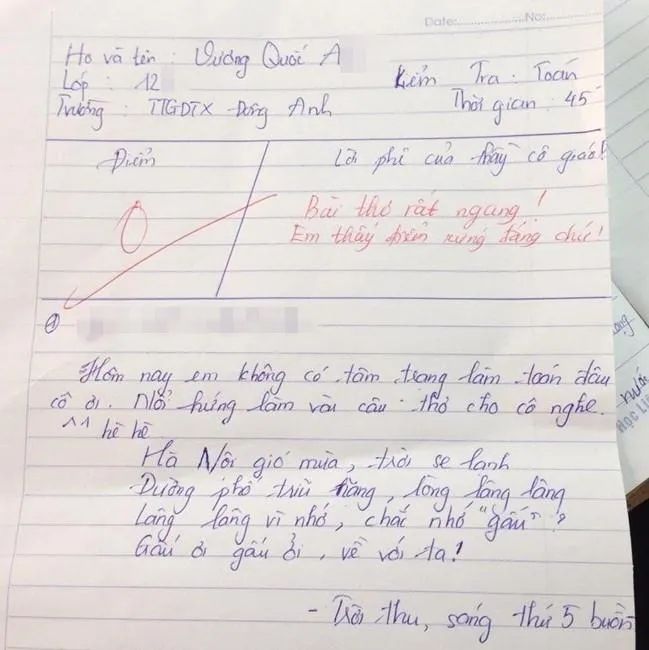 Date: No:
Họ và tên : Vương Quốc A
Lớp : 12
Kiểm Tra : Toán
Trường : TTGDTX Đông Anh
Thời gian : 45'
Điểm
Lời phê của thầy cô giáo!
0
Bài thơ rất ngang!
Em thấy điểm xứng đáng chứ!
①
Hôm nay em không có tâm trạng làm toán đâu
cô ơi. Nổi hứng làm vài câu thơ cho cô nghe.
^^ hề hề
Hà Nội gió mùa, trời se lạnh
Đường phố trữ nắng, lòng lâng lâng
Lâng lâng vì nhớ, chắc nhớ "gấu"?
Gấu ơi gấu ởi, về với ta!
- Trời thu, sáng thứ 5 buồn
HỌC LIỆ